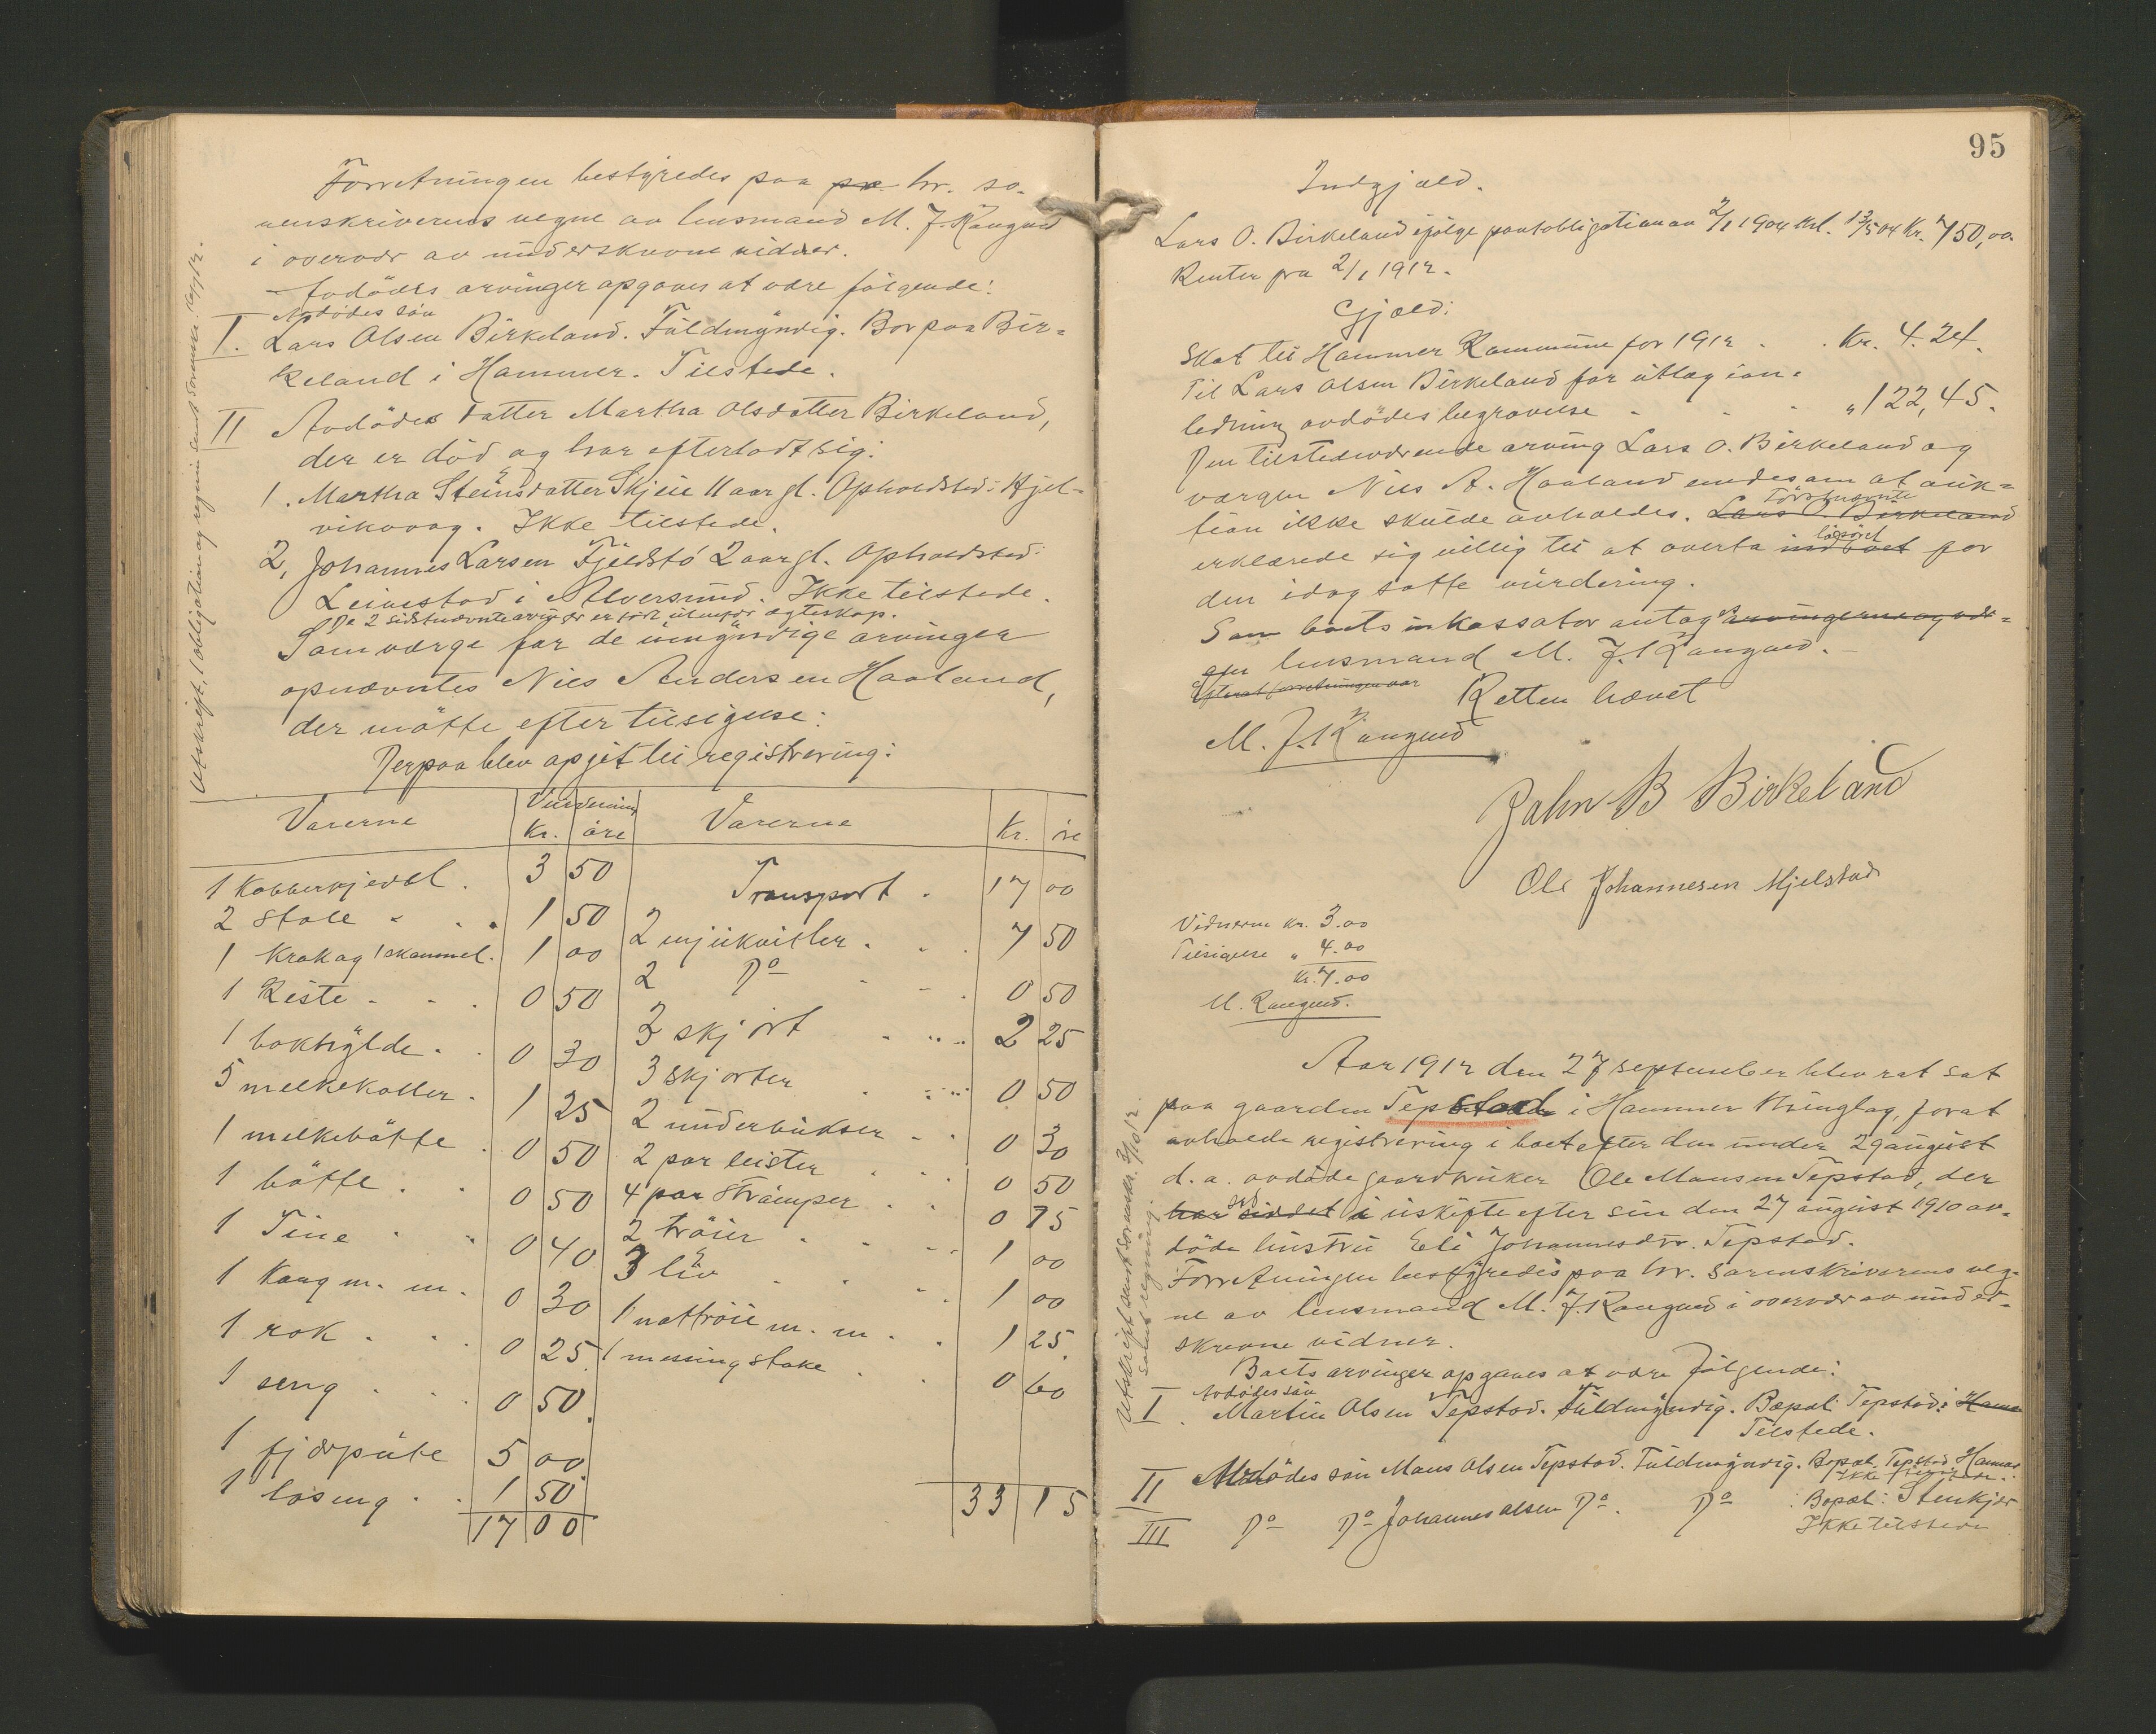 Forretningen bestyredes paa pr hr. so-
renskriverens vegne av lensmand M. J. Kangud
i overvær av underskrevne vidner.
Avdödes arvinger opgaves at være fölgende:
Avdödes sön
I. Lars Olsen Birkeland. Fuldmyndig. Bor paa Bir-
keland i Hammer. Tilstede.
II Avdödes datter Martha Olsdatter Birkeland,
der er död og har efterladt sig:
1. Martha Steinsdatter Skjeie 11 aar gl. Opholdsted: Hjel-
vikvaag. Ikke tilstede.
2, Johannes Larsen Fjeldstö 2 aar gl. Opholdsted:
Leivestad i Alversund. Ikke tilstede.
De 2 sidstnævnte arvinger er födt utenfor ægteskap.
Som værge for de umyndige arvinger
opnævntes Nils Andersen Haaland,
der mötte efter tilsigelse:
Derpaa blev opgit til registrering:
Utskrift, 1 obligation og regning sendt sorenskr.
Varerne Vurdering Varerne
Kr. öre Kr. öre
1 Kobberkjedel. 3 50 Transport. 17 00
2 stole 1 50 2 mjukvitler 7 50
1 krak og 1 skammel. 1 00 2 Do 0 50
1 Kiste 0 50 2 skjört 2 25
1 bokhylde 0 30 3 skjorter 0 50
5 melkekoller 1 25 2 underbukser 0 30
1 melkebötte 0 50 2 par leister 0 50
1 bötte 0 50 4 par strömper 0 75
1 Tine 0 40 2 tröier 1 00
1 Kaug m. m. 0 30 3 liv 1 00
1 rok 0 25 1 nattröie m. m. 1 25
1 seng 0 50 1 messingstake 0 60
1 fjærpute 5 00
1 löseng 1 50
17 00 33 15
95
Indgjæld.
Lars O. Birkeland ifölge pantobligation av 2/1 1904 thl. 13/5 04 Kr. 750,00.
Renter fra 2/1 1912.
Gjæld:
Skat til Hammer Kommune for 1912 Kr. 4.24.
Til Lars Olsen Birkeland for utlæg i an-
ledning avdödes begravelse " 122,45.
Den tilstedeværende arving Lars O. Birkeland og
værgen Nils A. Haaland enedes om at auk-
tion ikke skulde avholdes. Lars O. Birkeland
förstnævnte
erklærede sig villig til at overta indboet for
lösöret
den idag satte vurdering.
Som boets inkassator antog arvingerne og vær-
gen lensmand M. J. Kangud.
Efterat forretningen var Retten hævet
M. J. Kangud
John B Birkeland
Ole Johannesen Mjelstad
Vidnerne Kr. 3.00
Tilsigelse " 4.00
Kr. 7.00
M. Kangud.
Aar 1912 den 27 september blev ret sat
paa gaarden Tepstad i Hammer tinglag, for at
avholde registrering i boet efter den under 29 august
d. a. avdöde gaardbruker Ole Monsen Tepstad, der
har siddet i uskifte efter sin den 27 august 1910 av-
döde hustru Eli Johannesdtr. Tepstad.
Forretningen bestyredes paa hr. Sorenskriverens veg-
ne av lensmand M. J. Kangud i overvær av under-
skrevne vidner.
Boets arvinger opgaves at være fölgende:
Avdödes sön
I. Martin Olsen Tepstad. Fuldmyndig. Bopæl: Tepstad i Hamm
Tilstede.
II Avdödes sön Mons Olsen Tepstad. Fuldmyndig. Bopæl. Tepstad Hammer
Ikke tilstede.
III Do Do Johannes Olsen Do. Do : Bopæl: Stenkjær
Ikke tilstede
Utskrift sendt sorenskr. 3/10 12.
samt regning.